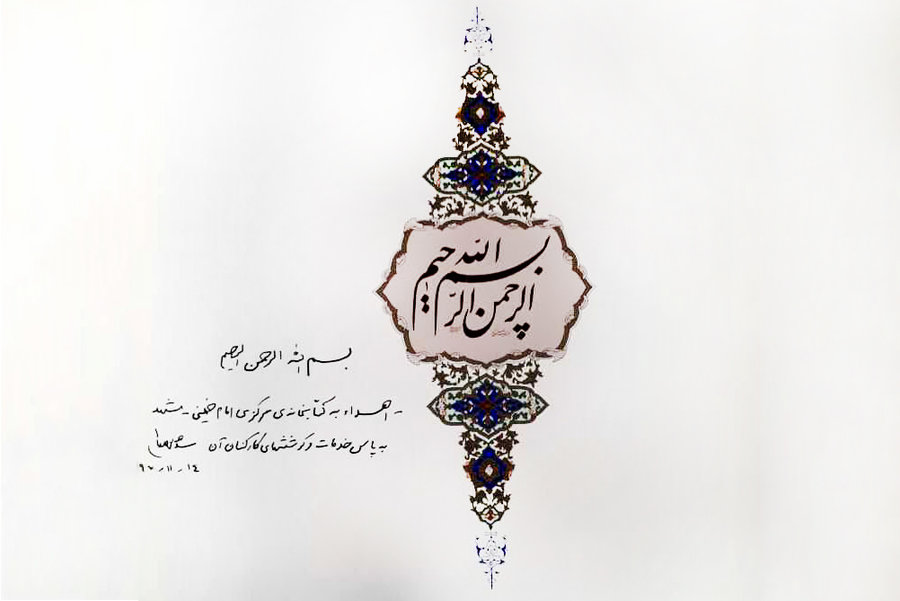 بسم الله الرحمن الرحیم
بسم الله الرحمن الرحیم
- اهداء به کتابخانه‌ی مرکزی امام خمینی - مشهد
به پاس خدمات و کوششهای کارکنان آن
۹۰-۱۱-۱۴